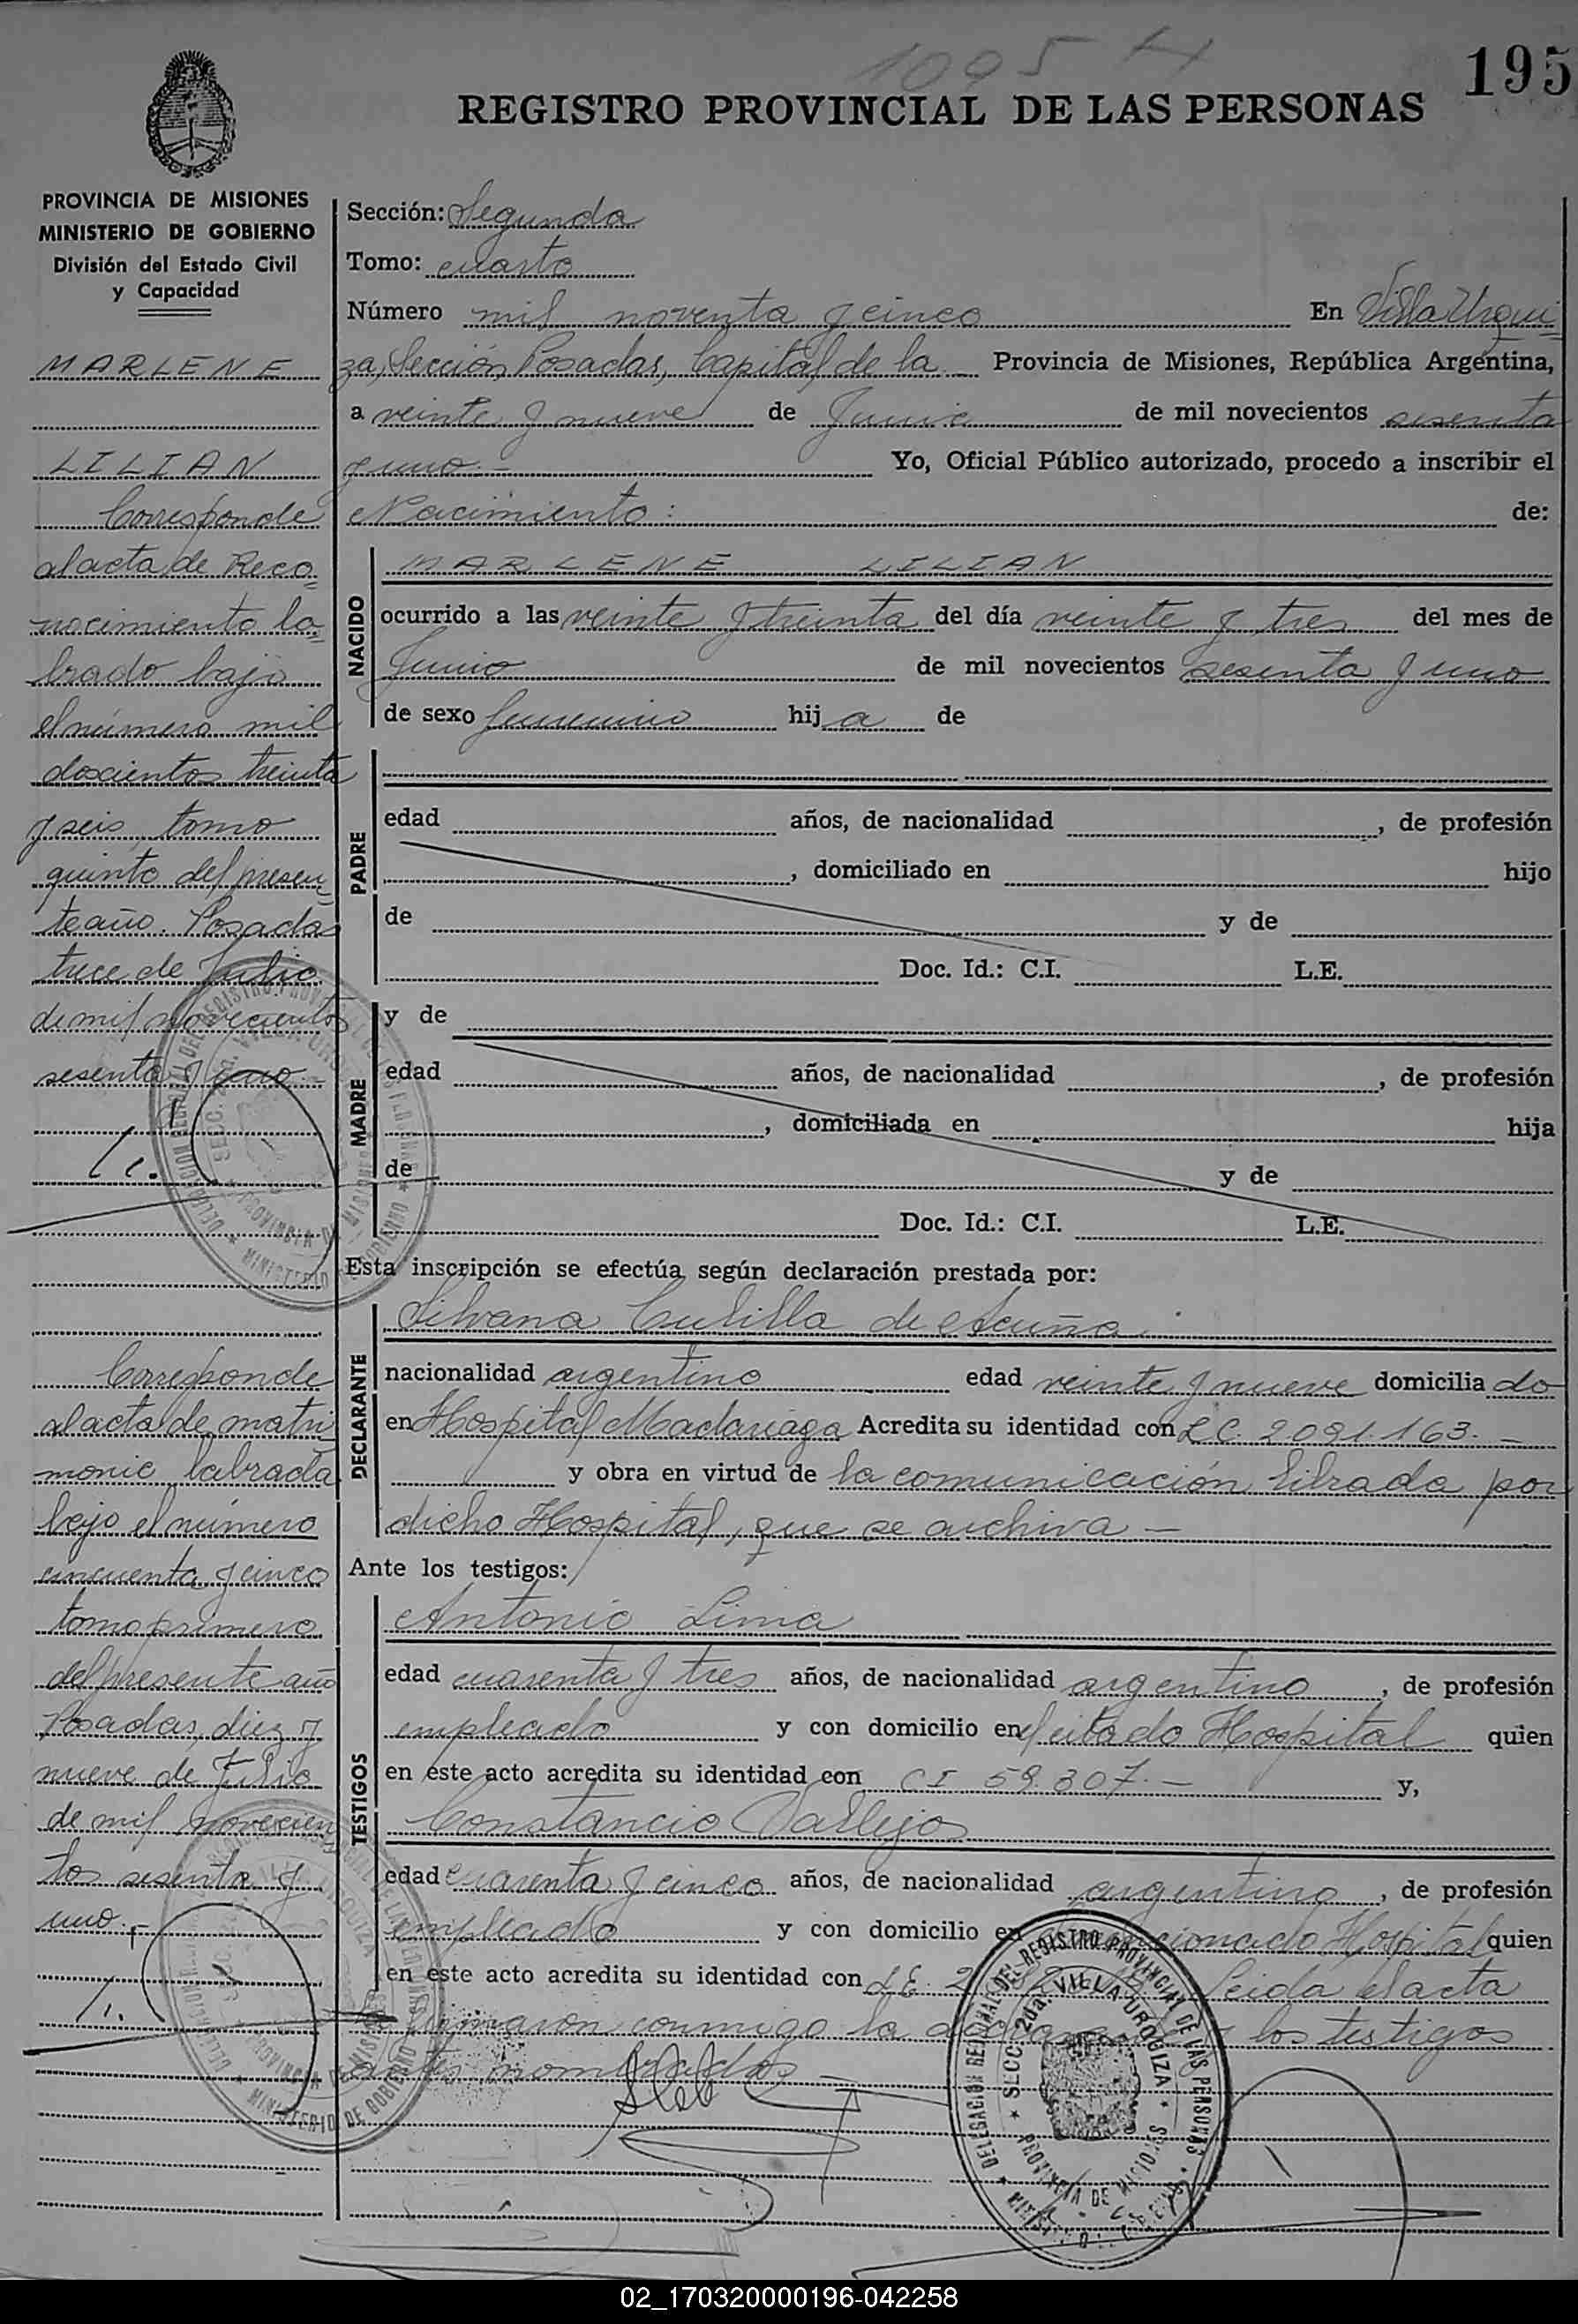 1095 H
195
REGISTRO PROVINCIAL DE LAS PERSONAS
PROVINCIA DE MISIONES
MINISTERIO DE GOBIERNO
División del Estado Civil
y Capacidad
MARLENE
LILIAN
Corresponde
al acta de Reco=
nocimiento la=
brado bajo
el número mil
doscientos treinta
y seis, tomo
quinto del presen=
te año. Posadas
trece de Julio
de mil novecientos
sesenta y uno.-
Corresponde
al acta de matri
monio labrada
bajo el número
cincuenta y cinco
tomo primero
del presente año
Posadas, diez y
nueve de Julio
de mil novecien
tos sesenta y
uno.-
Sección: Segunda
Tomo: cuarto
Número mil noventa y cinco En Villa Urqui=
za, Sección Posadas, Capital de la - Provincia de Misiones, República Argentina,
a veinte y nueve de Junio de mil novecientos sesenta
y uno.- Yo, Oficial Público autorizado, procedo a inscribir el
Nacimiento: de:
NACIDO
MARLENE LILIAN
ocurrido a las veinte y treinta del día veinte y tres del mes de
Junio de mil novecientos sesenta y uno
de sexo femenino hija de
PADRE
edad años, de nacionalidad , de profesión
, domiciliado en hijo
de y de
Doc. Id.: C.I. L.E.
MADRE
y de
edad años, de nacionalidad , de profesión
, domiciliada en hija
de y de
Doc. Id.: C.I. L.E.
Esta inscripción se efectúa según declaración prestada por:
DECLARANTE
Silvana Cutilla de Acuña
nacionalidad argentino edad veinte y nueve domiciliado
en Hospital Madariaga Acredita su identidad con L.C. 2.091.163.-
y obra en virtud de la comunicación librada por
dicho Hospital, que se archiva -
Ante los testigos:
TESTIGOS
Antonio Lima
edad cuarenta y tres años, de nacionalidad argentino, de profesión
empleado y con domicilio en el citado Hospital quien
en este acto acredita su identidad con CI 59.307.- y,
Constancio Vallejos
edad cuarenta y cinco años, de nacionalidad argentino, de profesión
empleado y con domicilio en Hospital quien
en este acto acredita su identidad con L.E. Leida el acta
la firmaron conmigo la los testigos
antes nombrados -
DELEGACION REGIONAL DEL REGISTRO PROVINCIAL DE LAS PERSONAS
SECC. 2da. VILLA URQUIZA
PROVINCIA DE MISIONES
MINISTERIO DE GOBIERNO
02_170320000196-042258